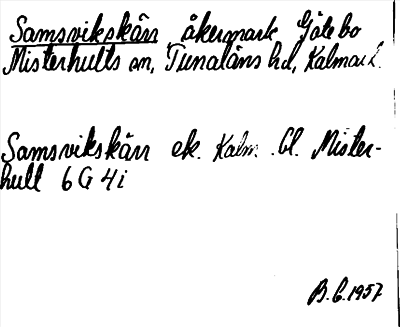 Samsvikskärr, åkermark Götebo
Misterhults sn, Tunaläns hd, Kalmar l.
Samsvikskärr ek. Kalm. Bl. Mister-
hult 6G4i
B.C. 1957